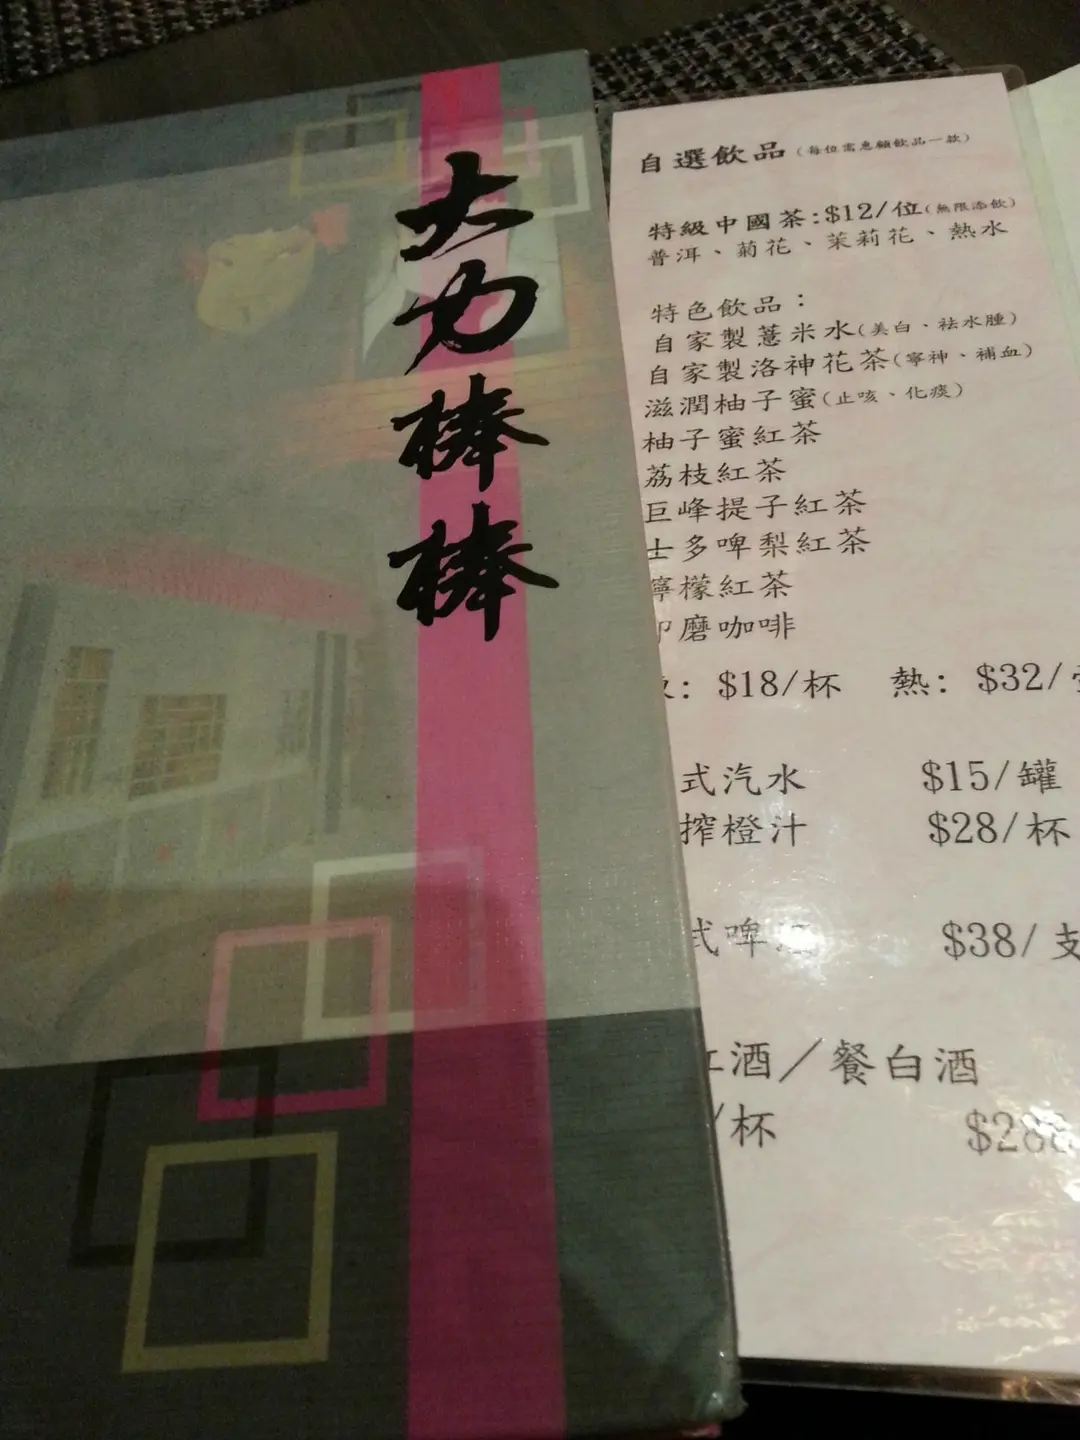 大力棒棒
自選飲品(每位需惠顧飲品一款)
特級中國茶:$12/位(無限添飲)
普洱、菊花、茉莉花、熱水
特色飲品:
自家製薏米水(美白、袪水腫)
自家製洛神花茶(寧神、補血)
滋潤柚子蜜(止咳、化痰)
柚子蜜紅茶
荔枝紅茶
巨峰提子紅茶
士多啤梨紅茶
檸檬紅茶
磨咖啡
: $18/杯 熱: $32/
式汽水 $15/罐
搾橙汁 $28/杯
式啤 $38/支
酒/餐白酒
/杯 $288